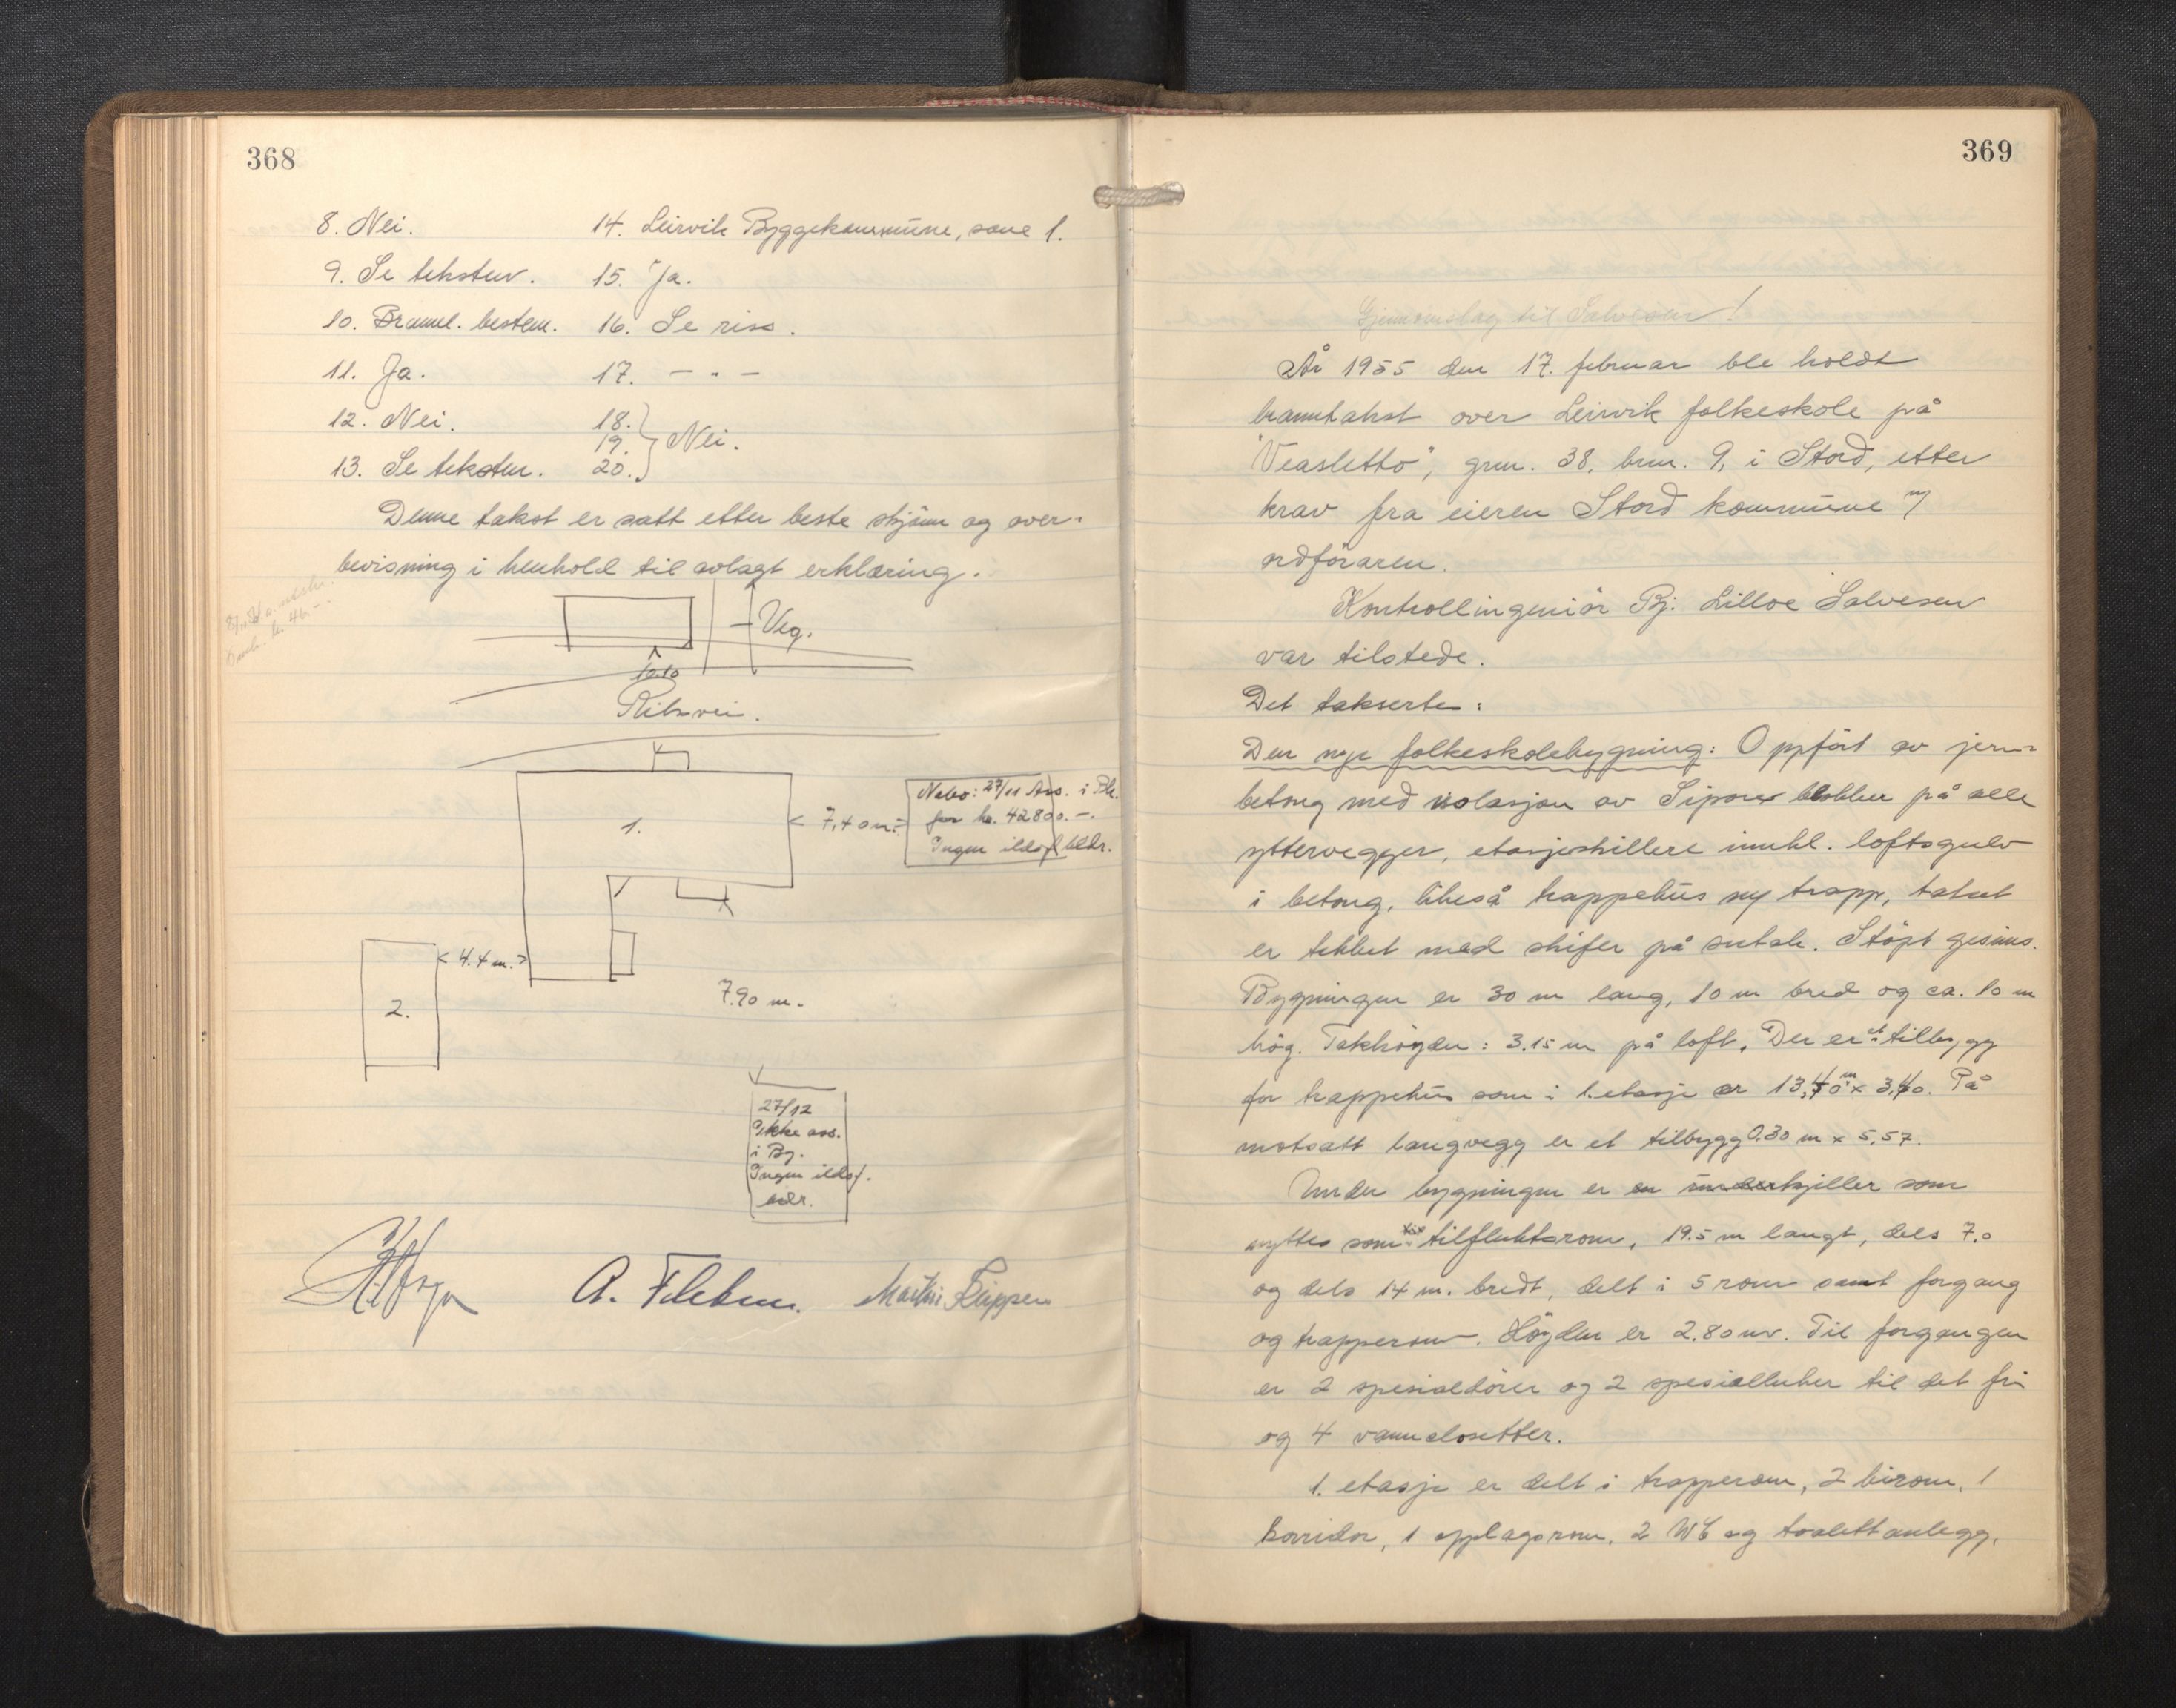 368
8. Nei.
14. Leirvik Byggekommune, sone 1.
9. Se teksten.
15. Ja.
10. Brannl. bestem.
16. Se riss.
11. Ja.
17. — " —
12. Nei.
18.
19. Nei.
13. Se teksten.
20.
Denne takst er satt etter beste skjönn og over-
bevisning i henhold til avlagt erklæring.
kr. 46.-
Veg.
10.10
Riksvei.
1.
7,40 m.
Nabo: 27/11 Ass. i Bk.
for kr. 42800.-.
Ingen ildsf. bedr.
2.
4.4 m.
7.90 m.
27/12
Ikke ass.
i By.
Ingen ildsf.
bedr.
Martin Kleppen
369
Gjennomslag til Salvesen!
År 1955 den 17. februar ble holdt
branntakst over Leirvik folkeskole på
"Veasletto", gnr. 38, bnr. 9, i Stord, etter
krav fra eieren Stord kommune v/
ordföraren.
Kontrollingeniör Bj. Lilloe Salvesen
var tilstede.
Det takserte:
Den nye folkeskolebygning: Oppfört av jern-
betong med isolasjon av Siporex blokker på alle
yttervegger, etasjeskillere innkl. loftsgulv
i betong, likeså trappehus og trapp, taket
er tekket med skifer på sutak. Stöpt gesims.
Bygningen er 30 m lang, 10 m bred og ca. 10 m
hög. Takhöyden: 3.15 m på loft. Der er et tilbygg
for trappehus som i 1. etasje er 13,40 m x 3,40. På
motsatt langvegg er et tilbygg 0.30 m x 5.57.
Under bygningen er en underkjeller som
nyttes som tilfluktsrom, 19.5 m langt, dels 7.0
og dels 14 m. bredt, delt i 5 rom samt forgang
og trapperom. Höyden er 2.80 m. Til forgangen
er 2 spesialdörer og 2 spesialluker til det fri
og 4 vannclosetter.
1. etasje er delt i trapperom, 2 birom, 1
korridor, 1 opplagsrom, 2 WC og toalettanlegg,